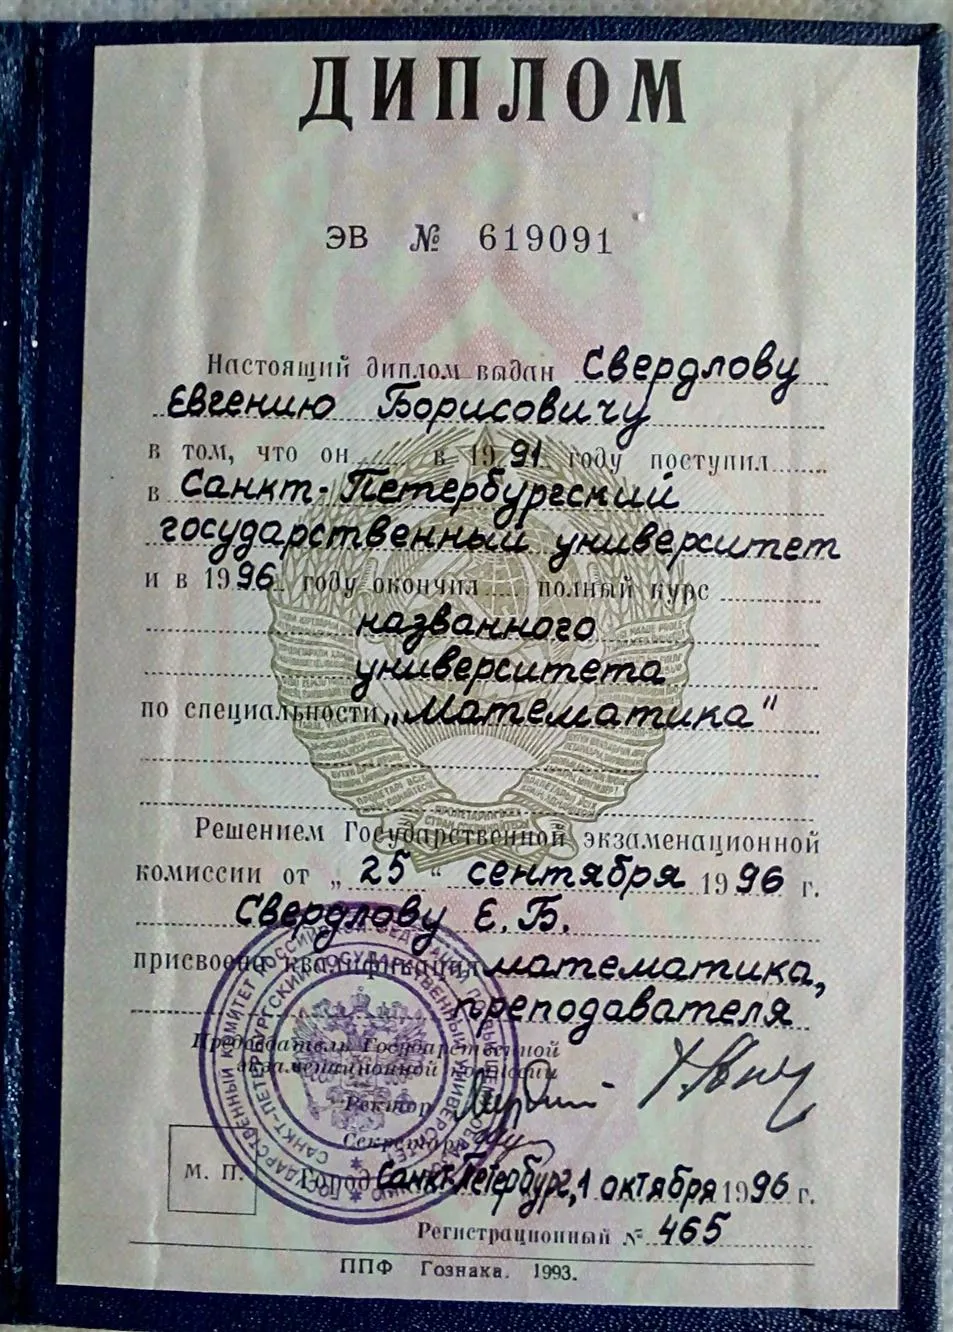 ДИПЛОМ
ЭВ № 619091
Настоящий диплом выдан Свердлову
Евгению Борисовичу
в том, что он в 1991 году поступил
в Санкт-Петербургский
государственный университет
и в 1996 году окончил полный курс
названного
университета
по специальности „Математика"
Решением Государственной экзаменационной
комиссии от „25" сентября 1996 г.
Свердлову Е.Б.
присвоена квалификация математика,
преподавателя
Председатель Государственной
экзаменационной комиссии
Ректор
Секретарь
М. П.
Город Санкт-Петербург, 1 октября 1996 г.
Регистрационный № 465
ППФ Гознака. 1993.